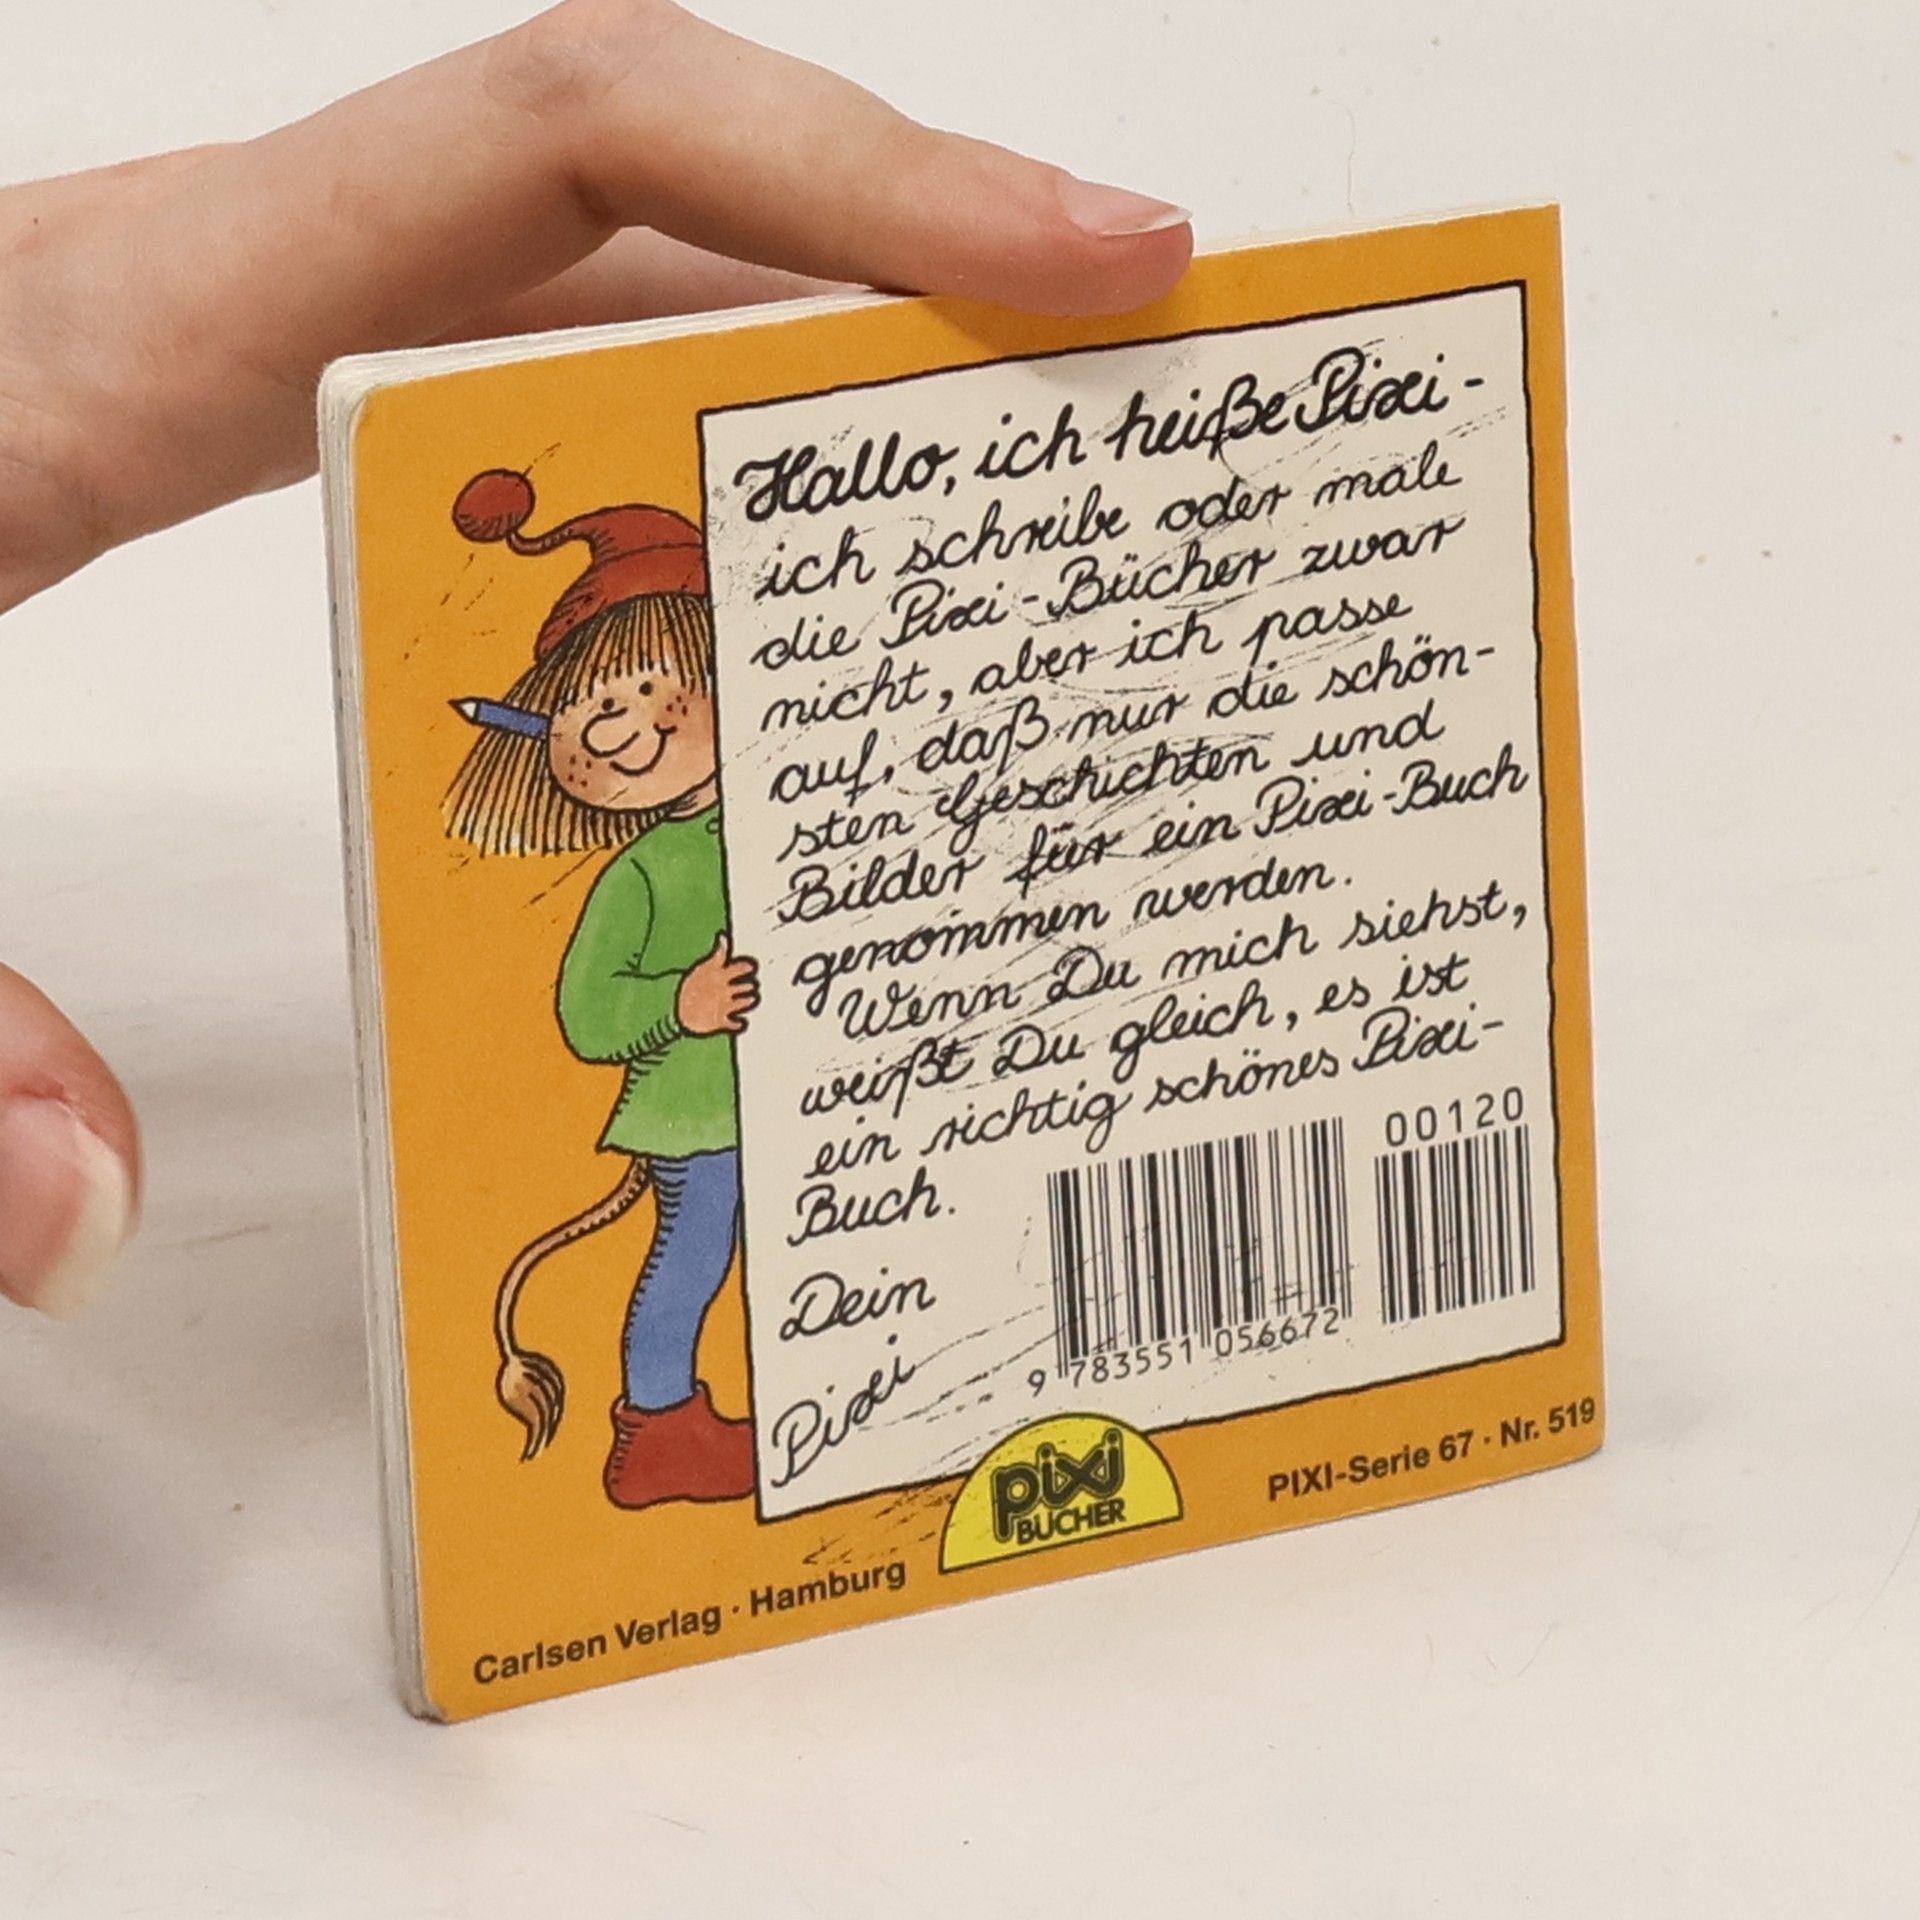 Hallo, ich heiße Pixi -
ich schreibe oder male
die Pixi-Bücher zwar
nicht, aber ich passe
auf, daß nur die schön-
sten Geschichten und
Bilder für ein Pixi-Buch
genommen werden.
Wenn Du mich siehst,
weißt Du gleich, es ist
ein richtig schönes Pixi-
Buch.
Dein
Pixi
00120
9 783551 056672
pixi
BÜCHER
PIXI-Serie 67 · Nr. 519
Carlsen Verlag · Hamburg